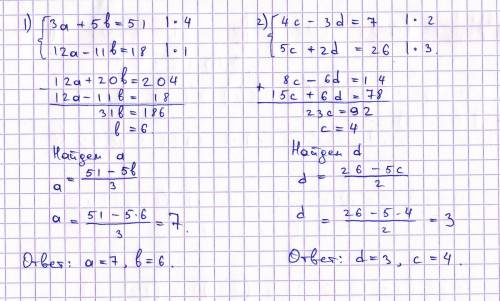 1) { 3a + 5b = 51 | · 4
12a - 11b = 18 | · 1
- 12a + 20b = 204
12a - 11b = 18
31b = 186
b = 6
Найдем a
a = (51 - 5b)/3
a = (51 - 5·6)/3 = 7.
Ответ: a = 7, b = 6.
2) { 4c - 3d = 7 | · 2
5c + 2d = 26 | · 3.
+ 8c - 6d = 14
15c + 6d = 78
23c = 92
c = 4
Найдем d
d = (26 - 5c)/2
d = (26 - 5·4)/2 = 3
Ответ: d = 3, c = 4.